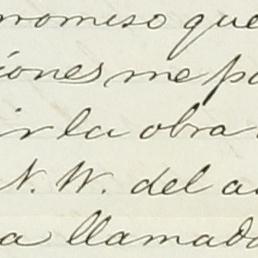 romiso que
iones me pa
ir la obra
N. W. del a
a llamado